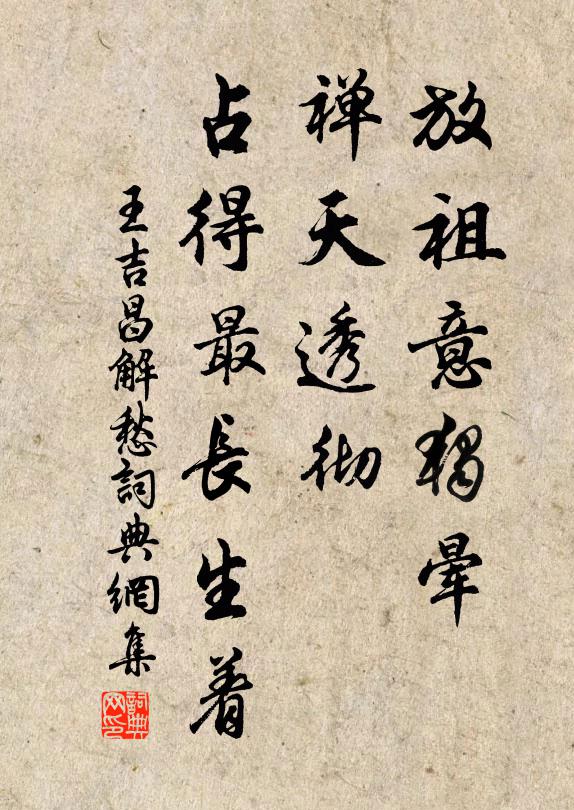 放祖意獨暈
禅天透彻
占得最長生着
王吉昌解愁詞典網集
詞典網印